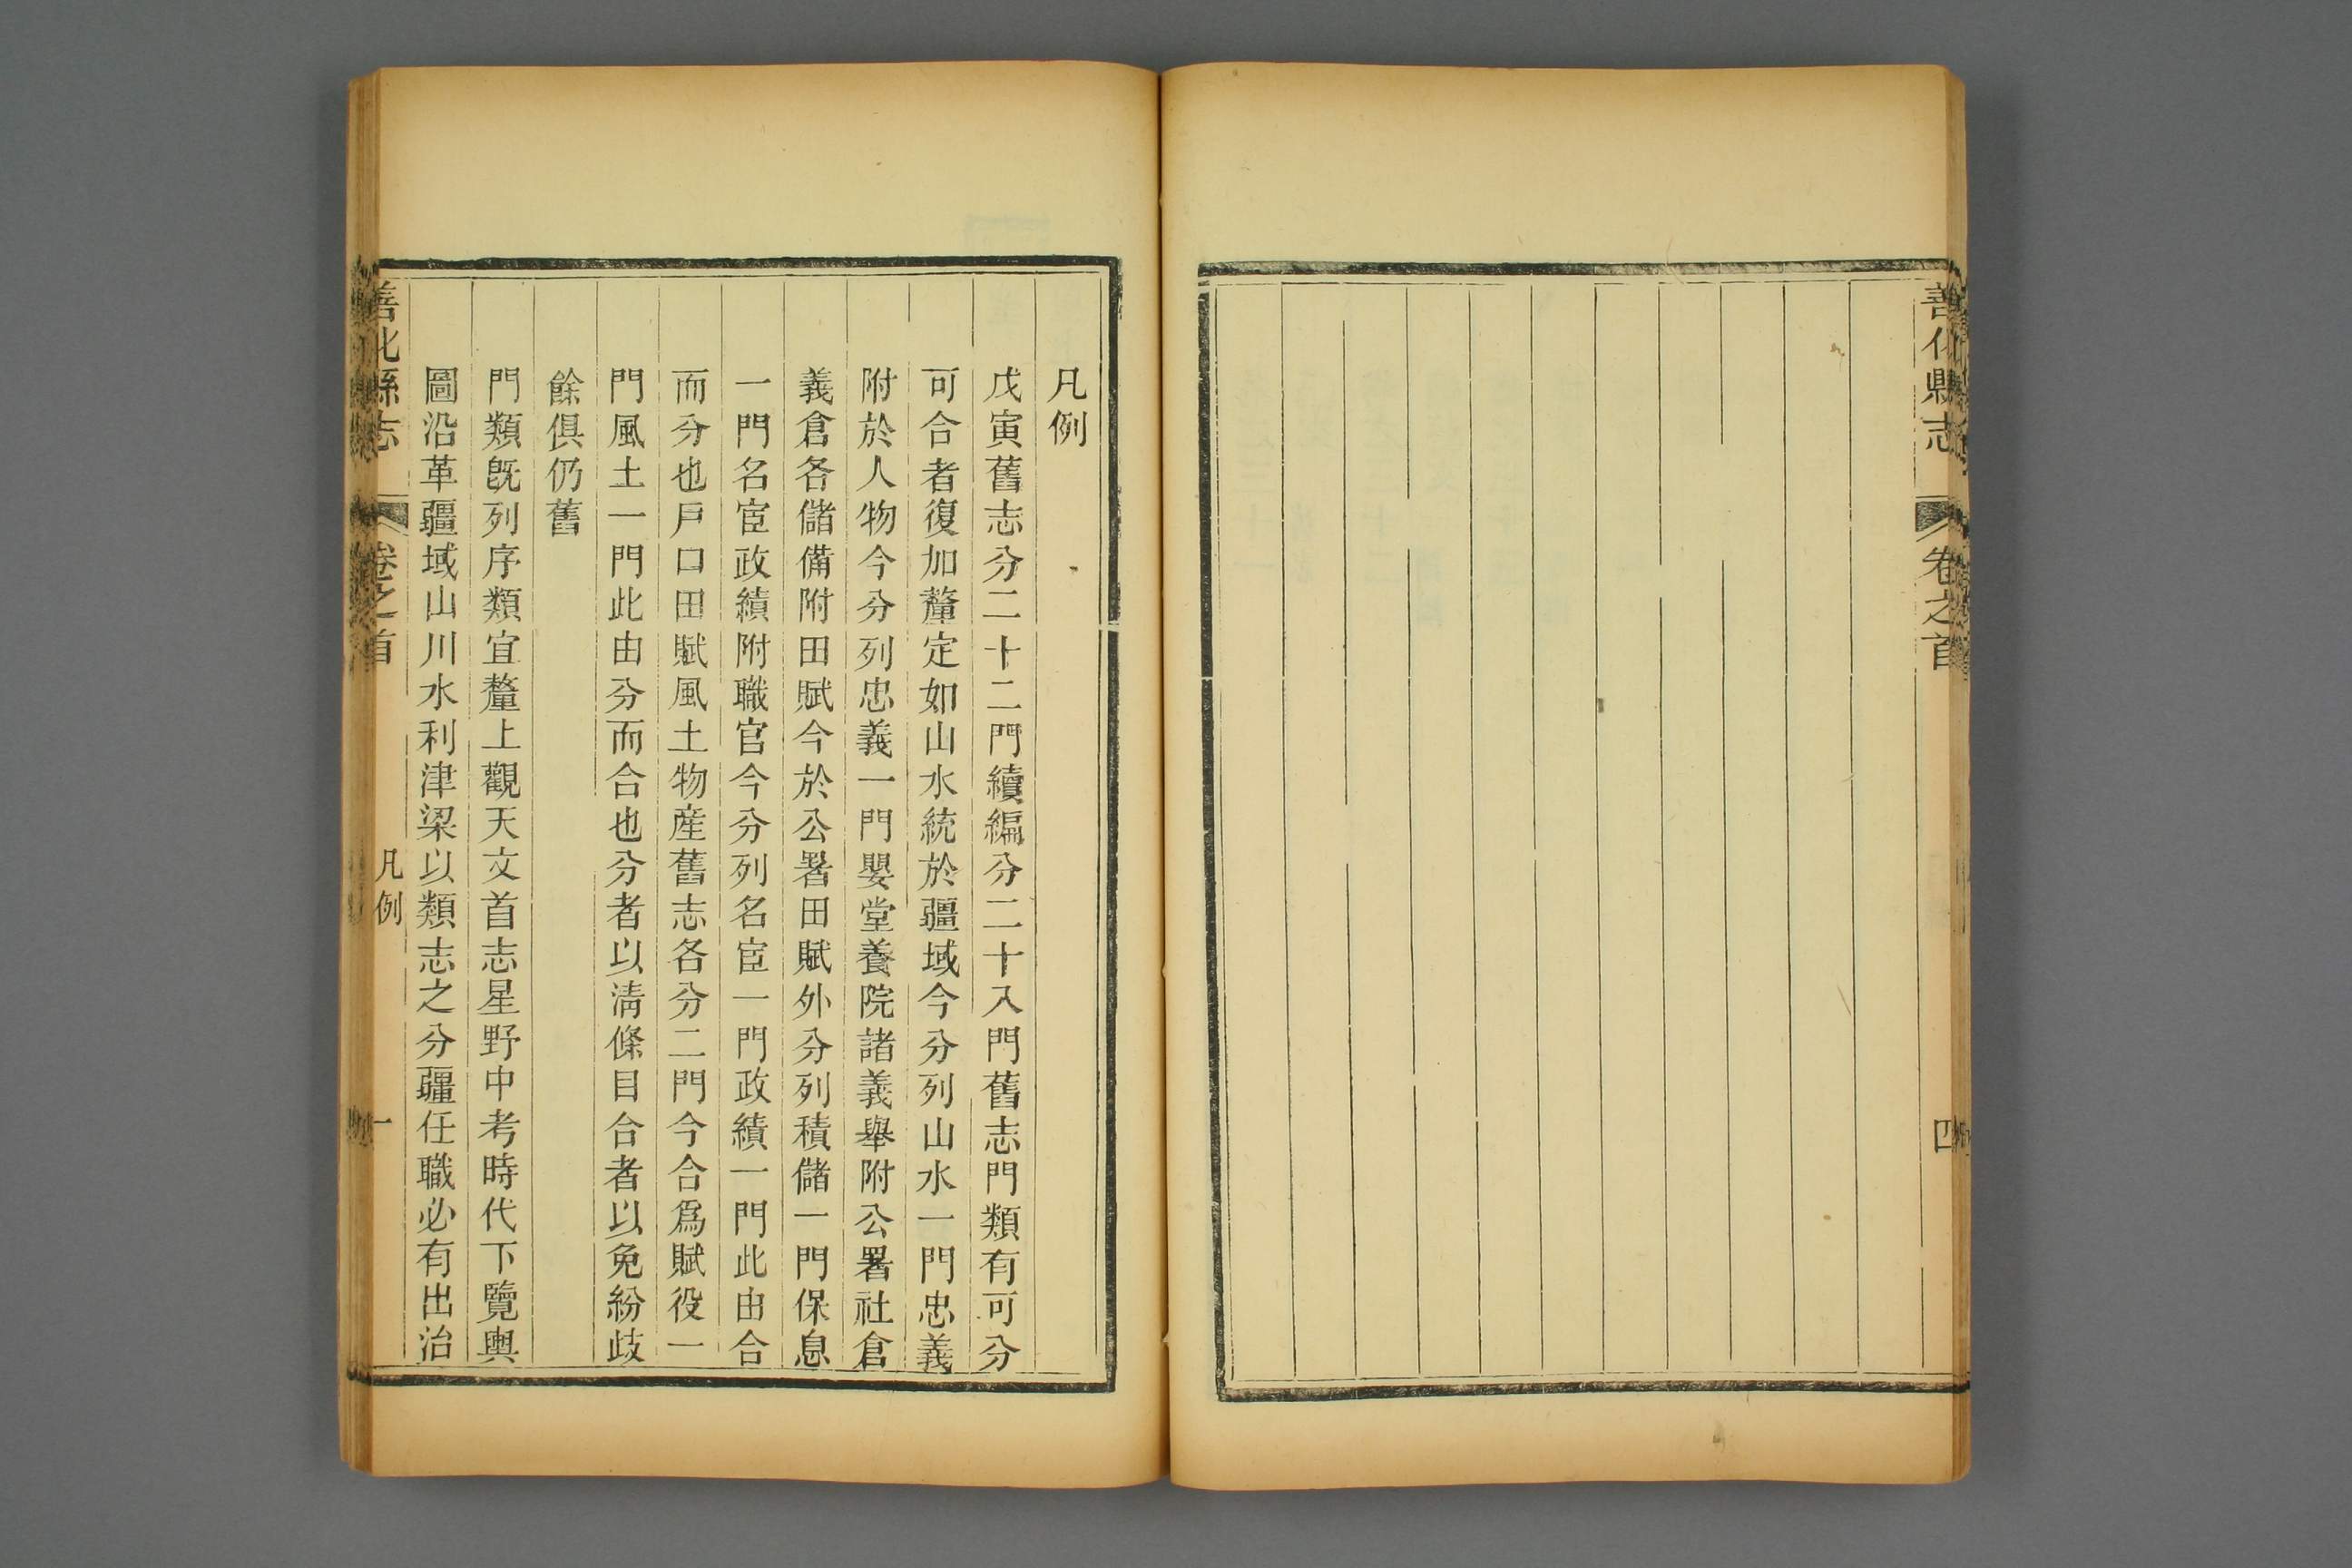 善化縣志
卷之首
四
凡例
戊寅舊志分二十二門續編分二十八門舊志門類有可分
可合者復加釐定如山水統於疆域今分列山水一門忠義
附於人物今分列忠義一門嬰堂養院諸義舉附公署社倉
義倉各儲備附田賦今於公署田賦外分列積儲一門保息
一門名宦政績附職官今分列名宦一門政績一門此由合
而分也戶口田賦風土物產舊志各分二門今合爲賦役一
門風土一門此由分而合也分者以淸條目合者以免紛歧
餘俱仍舊
門類旣列序類宜釐上觀天文首志星野中考時代下覽輿
圖沿革疆域山川水利津梁以類志之分疆任職必有出治
善化縣志
卷之首
凡例
一